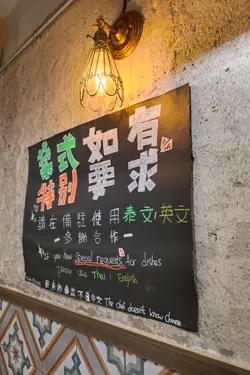 如有
菜式
特別
要求
請在備註使用泰文/英文
－多謝合作－
If you have special requests for dishes
please use Thai / English
廚師並不懂中文 The chef doesn't know chinese